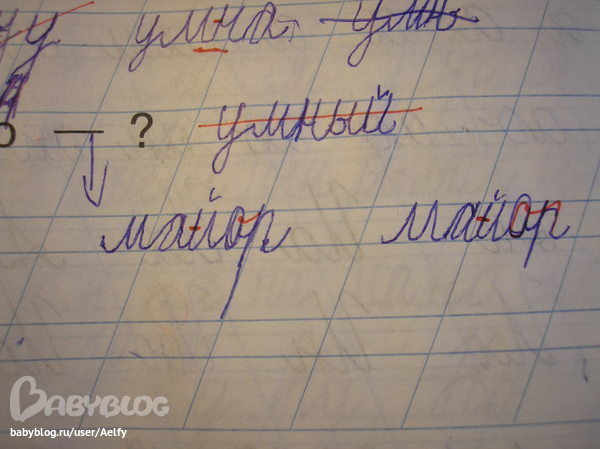 умна умн
— ? умный
майор майор
BABYBLOG
babyblog.ru/user/Aelfy